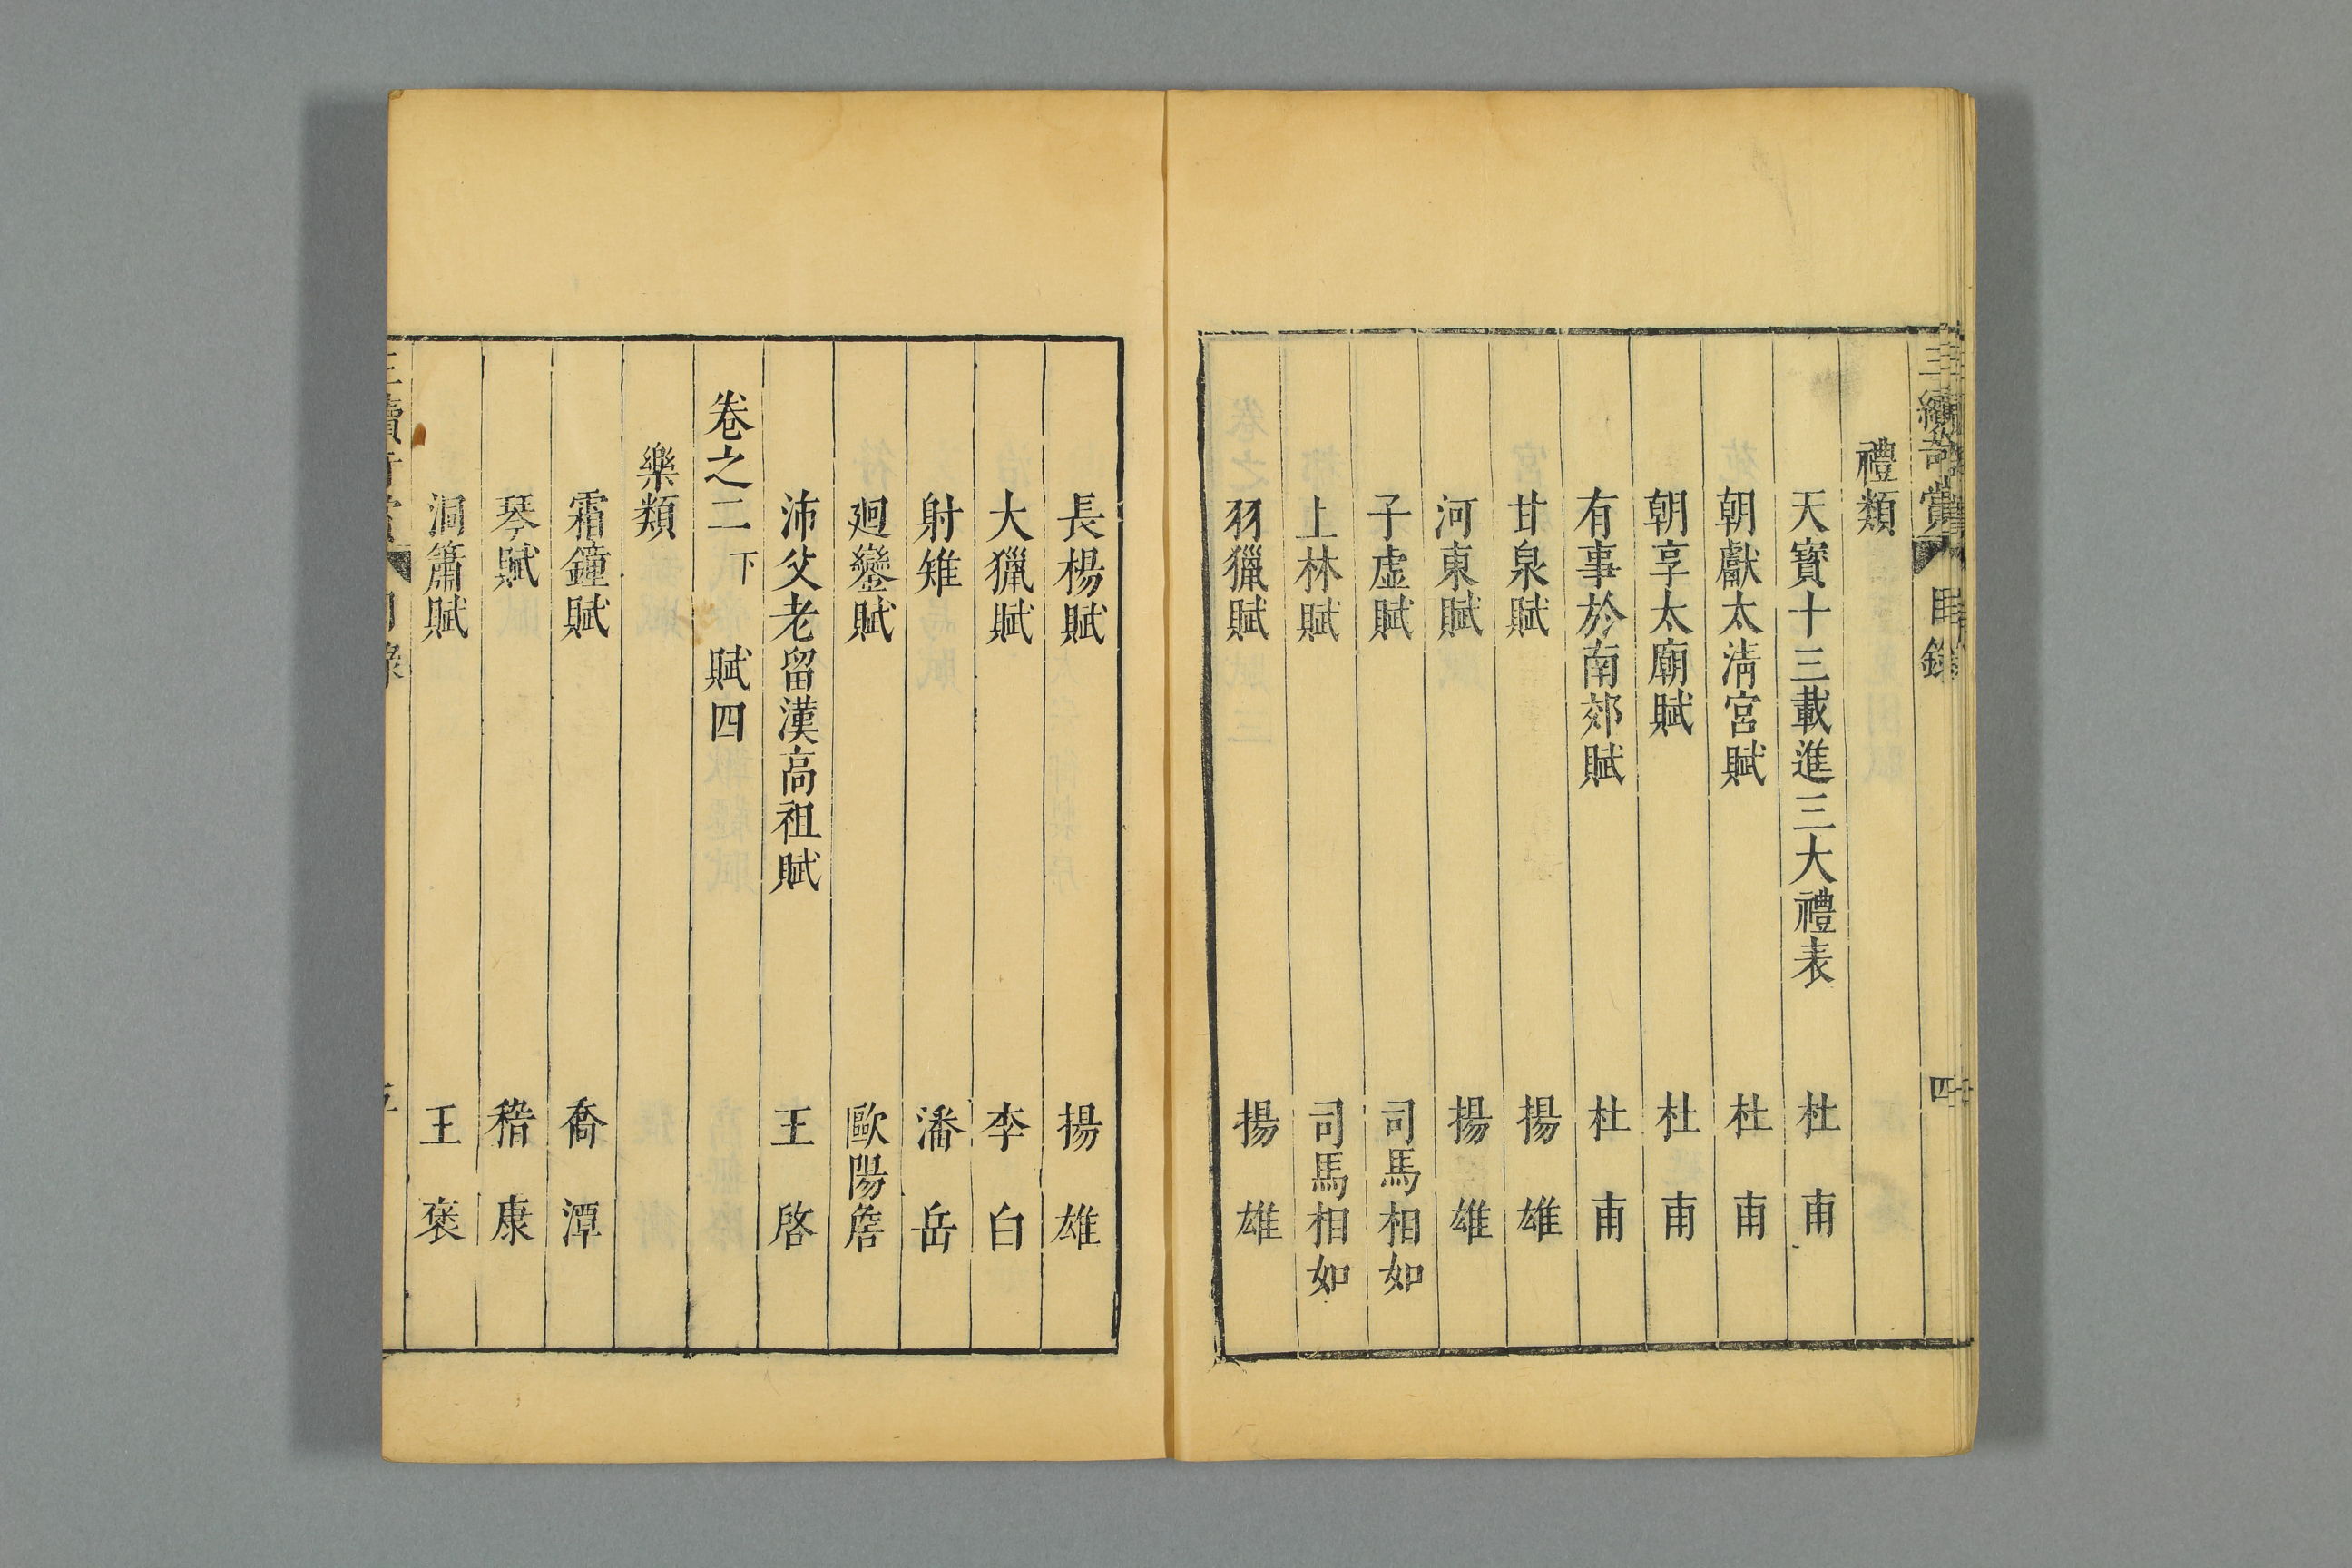 禮類
天寳十三載進三大禮表 杜甫
朝獻太淸宮賦 杜甫
朝享太廟賦 杜甫
有事於南郊賦 杜甫
甘泉賦 揚雄
河東賦 揚雄
子虛賦 司馬相如
上林賦 司馬相如
羽獵賦 揚雄
長楊賦 揚雄
大獵賦 李白
射雉 潘岳
廻鑾賦 歐陽詹
沛父老留漢高祖賦 王啓
卷之二下 賦四
樂類
霜鐘賦 喬潭
琴賦 嵇康
洞簫賦 王褒